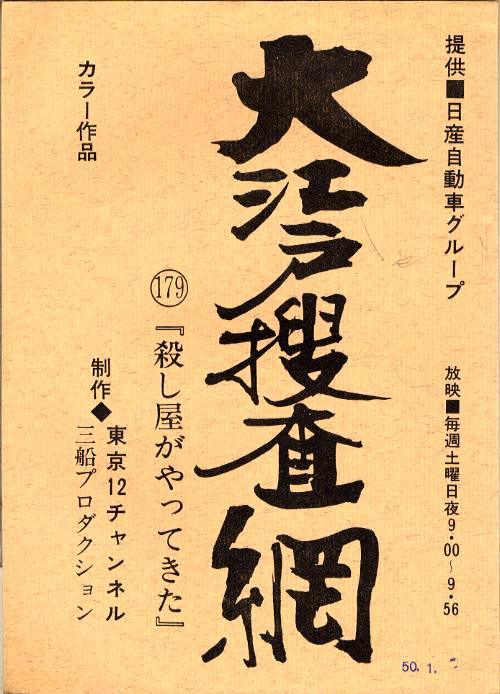 提供■日産自動車グループ
放映■毎週土曜日夜9・00〜9・56
大江戸捜査網
179『殺し屋がやってきた』
カラー作品
制作◆東京12チャンネル
三船プロダクション
50.1.